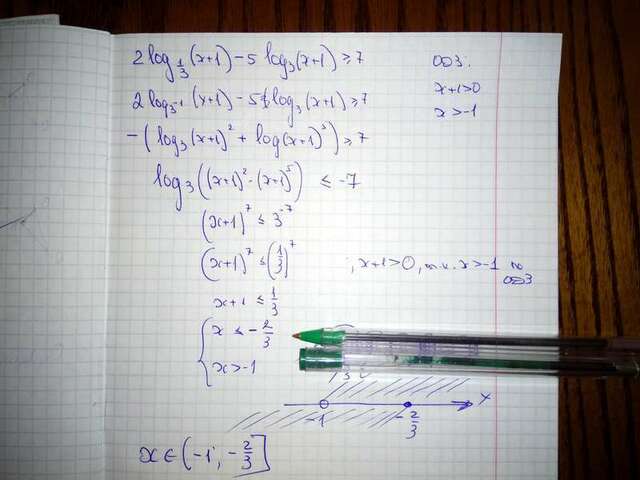 2 log_{1/3} (x+1) - 5 log_3 (x+1) ≥ 7
ОДЗ:
x+1>0
x>-1
2 log_{3^{-1}} (x+1) - 5 log_3 (x+1) ≥ 7
-(log_3 (x+1)^2 + log (x+1)^5) ≥ 7
log_3 ((x+1)^2 · (x+1)^5) ≤ -7
(x+1)^7 ≤ 3^{-7}
(x+1)^7 ≤ (1/3)^7 , x+1>0, т.к. x>-1 по
ОДЗ
x+1 ≤ 1/3
{ x ≤ -2/3
x>-1
-1 -2/3 x
x ∈ (-1; -2/3]